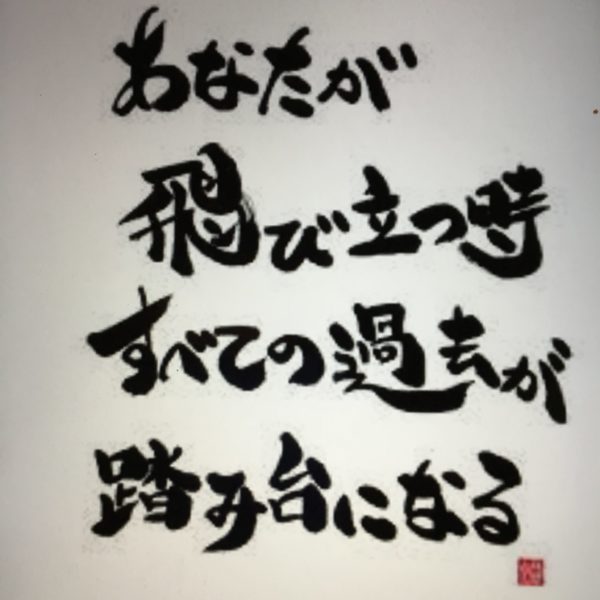 あなたが
飛び立つ時
すべての過去が
踏み台になる